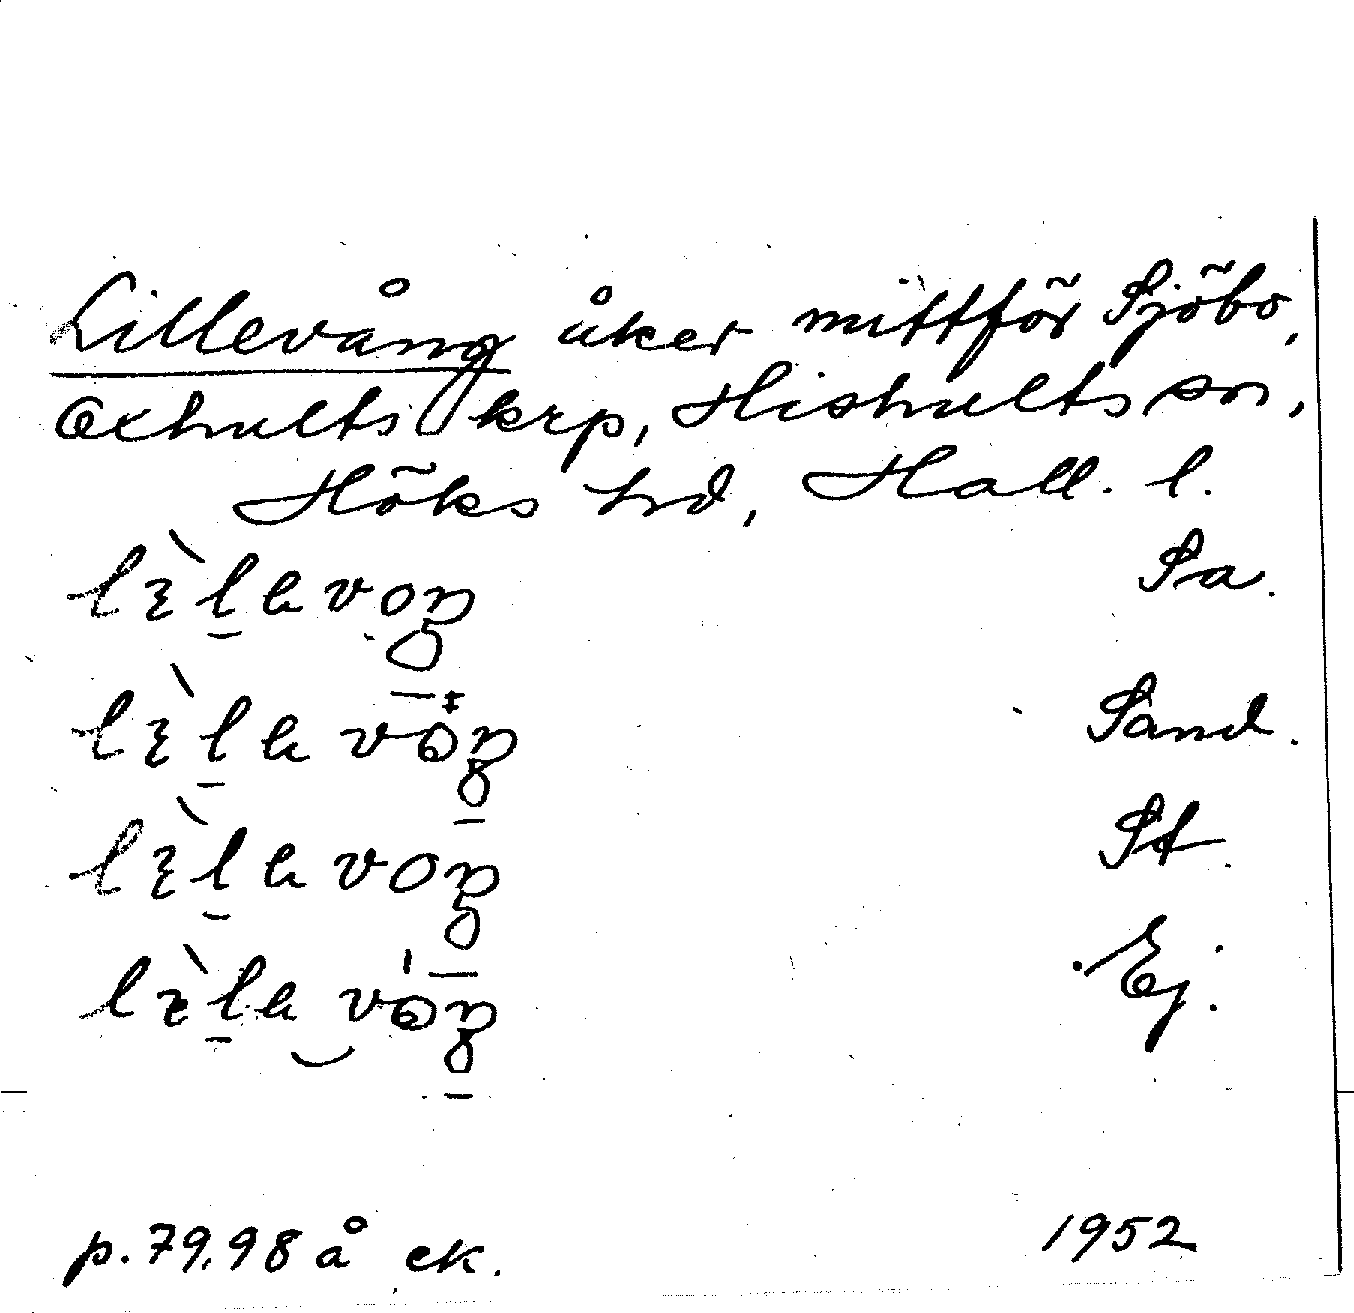 Lillevång åker mittför Sjöbo,
Oxhults krp, Hishults sn,
Höks hrd, Hall. l.
lìlavoŋ Sa.
lìlavoŋ Sand.
lìlavoŋ St.
lìla voŋ Ej.
p. 79, 98 å ek. 1952